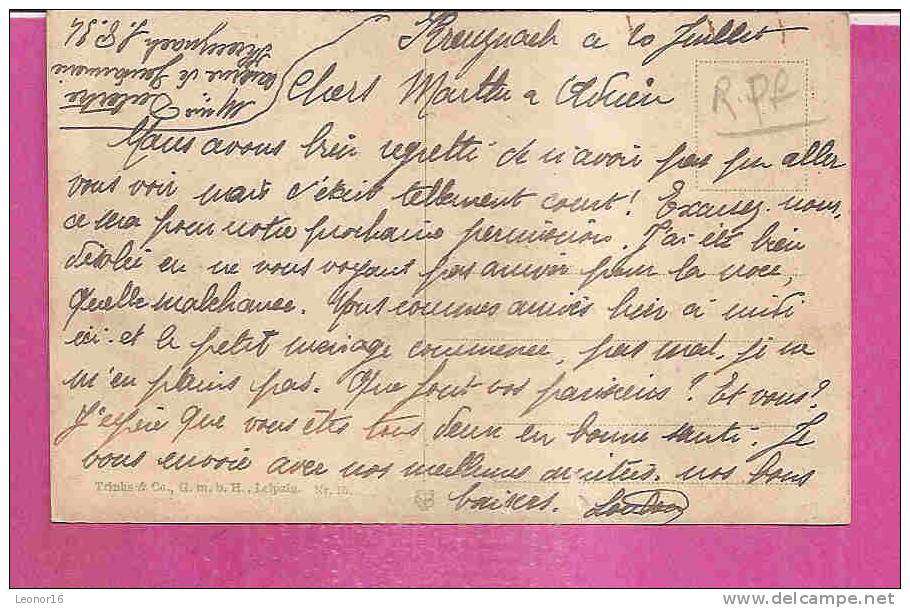 Kreuznach a 20 Juillet
Chers Marthe a Adrien
Nous avons bien regretté de n'avoir pas pu aller
vous voir mais c'était tellement court! Excusez-nous,
ce sera pour notre prochaine permission. J'ai été bien
désolée en ne vous voyant pas arriver pour la noce,
Quelle malchance. Nous sommes arrivés hier à midi
ici. et le petit ménage commence, pas mal, je ne
m'en plains pas. Que font vos parisiens? Et vous?
J'espère que vous êtes tous deux en bonne santé. Je
vous envoie avec nos meilleures amitiés. nos bons
baisers.
Trinks & Co., G. m. b. H., Leipzig. Nr. 10.
R.PF
Kreuznach S.P. 84
Leonor16
delcampe.net